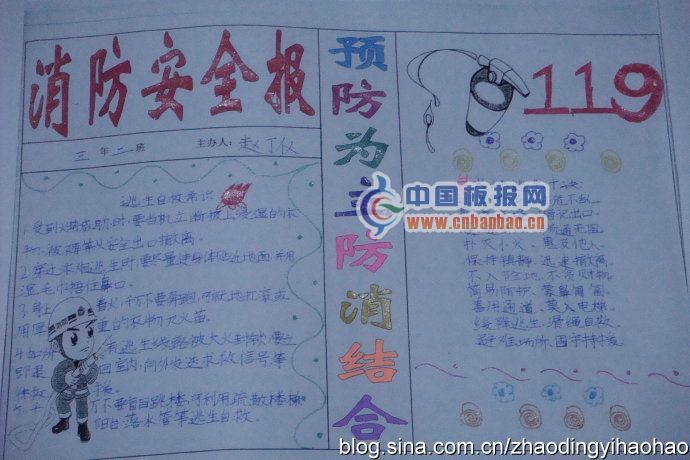 消防安全报
三年二班 主办人:赵丁仪
逃生自救常识
1.受到火灾威胁时,要当机立断披上浸湿的衣
物、被褥等从安全出口撤离。
2.穿过浓烟逃生时,要尽量使身体贴近地面,并用
湿毛巾捂住鼻口。
3.身上着火,千万不要奔跑,可就地打滚或
用厚重的衣物灭火苗。
4.
有逃生线路被大火封锁,要立
即退回室内,向外发送求救信号,等
待救援。
千万不要盲目跳楼,可利用疏散楼梯、
阳台、落水管等逃生自救。
预防为主防消结合
119
扑灭小火,惠及他人。
保持镇静,迅速撤离。
不入险地,不贪财物。
简易防护,蒙鼻匍匐。
善用通道,莫入电梯。
缓降逃生,滑绳自救。
避难场所,固守待援。
中国板报网
www.cnbanbao.cn
blog.sina.com.cn/zhaodingyihaohao